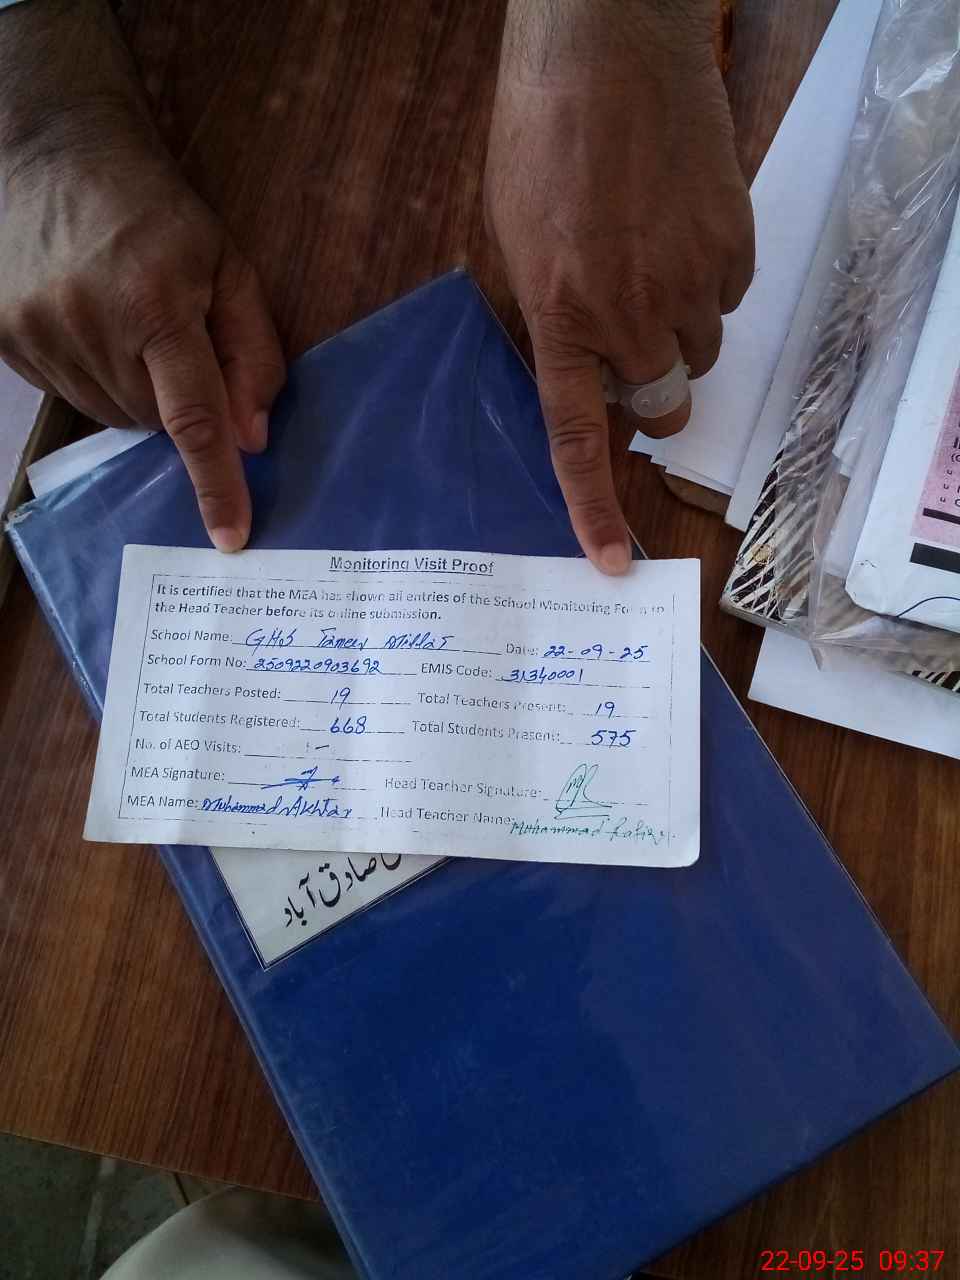 Monitoring Visit Proof
It is certified that the MEA has shown all entries of the School Monitoring Form to
the Head Teacher before its online submission.
School Name: GHSS Tameer Millat Date: 22-09-25
School Form No: 2509220903692 EMIS Code: 31340001
Total Teachers Posted: 19 Total Teachers Present: 19
Total Students Registered: 668 Total Students Present: 575
No. of AEO Visits: -
MEA Signature: Head Teacher Signature:
MEA Name: Muhammad Akhtar Head Teacher Name: Muhammad
صادق آباد
22-09-25 09:37